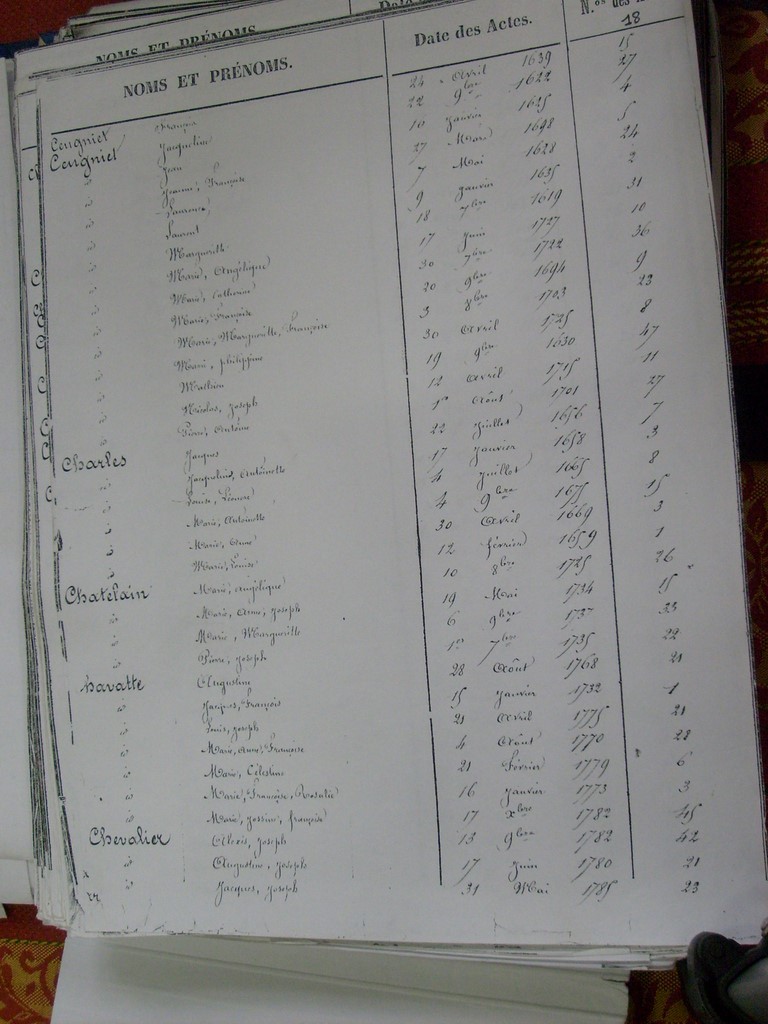 NOMS ET PRÉNOMS.
NOMS ET PRÉNOMS. Date des Actes. N.os des
18
Ceugniet François 24 Avril 1639 15
Ceugniet Jacqueline 22 9bre 1622 27
id Jean 10 Janvier 1625 4
id Jeanne, Françoise 27 Mars 1698 5
id Laurence 7 Mai 1628 24
id Laurent 9 Janvier 1635 2
id Marguerite 18 7bre 1619 31
id Marie, Angélique 17 Juin 1727 10
id Marie, Catherine 30 7bre 1722 36
id Marie, Françoise 20 9bre 1694 9
id Marie, Marguerite, Françoise 3 8bre 1703 23
id Marie, philippine 30 Avril 1725 8
id Mathieu 19 9bre 1630 47
id Nicolas, Joseph 12 Avril 1715 11
id Pierre, Antoine 1er Août 1701 27
Charles Jacques 22 Juillet 1656 7
id Jacqueline, Antoinette 17 Janvier 1658 3
id Louise, Léonore 4 Juillet 1665 8
id Marie, Antoinette 4 9bre 1675 15
id Marie, Anne 30 Avril 1669 3
id Marie, Louise 12 février 1659 1
Chatelain Marie, Angélique 10 8bre 1725 26
id Marie, Anne, Joseph 19 Mai 1734 15
id Marie, Marguerite 6 9bre 1737 33
id Pierre, Joseph 1er 7bre 1735 22
havatte Augustine 28 Août 1768 21
id Jacques, François 15 Janvier 1732 1
id Louis, Joseph 21 Avril 1775 21
id Marie, Anne, Françoise 4 Août 1770 28
id Marie, Célestine 21 Février 1779 6
id Marie, Françoise, Rosalie 16 Janvier 1773 3
id Marie, Jossine, françoise 17 Xbre 1782 45
Chevalier Alexis, Joseph 13 9bre 1782 42
id Augustine, Joseph 17 Juin 1780 21
id Jacques, Joseph 31 Mai 1785 23